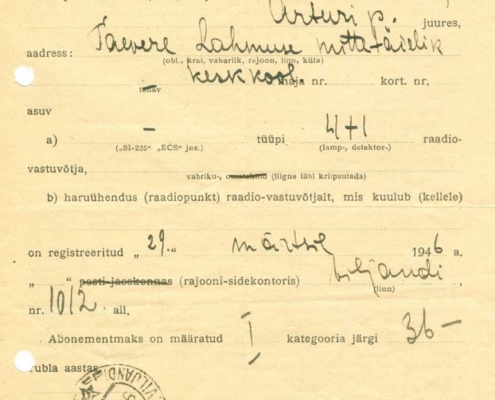 Arturi p. juures,
aadress: Taevere Lahmuse mittetäielik
(obl., krai, vabariik, rajoon, linn, küla)
keskkool. maja nr. kort. nr.
tänav
asuv
a) — tüüpi 4+1 raadio-
(„SI-235“ „ECS“ jne.) (lamp-, detektor-)
vastuvõtja, vabriku-, omatehtud (liigne läbi kriipsutada)
b) haruühendus (raadiopunkt) raadio-vastuvõtjalt, mis kuulub (kellele)
on registreeritud „29.“ märtsil 1946 a.
„ “ posti-jaoskonnas (rajooni-sidekontoris) Viljandi,
(linn)
nr. 1012 all.
Abonementmaks on määratud I kategooria järgi 36—
rubla aastas.
VILJANDI